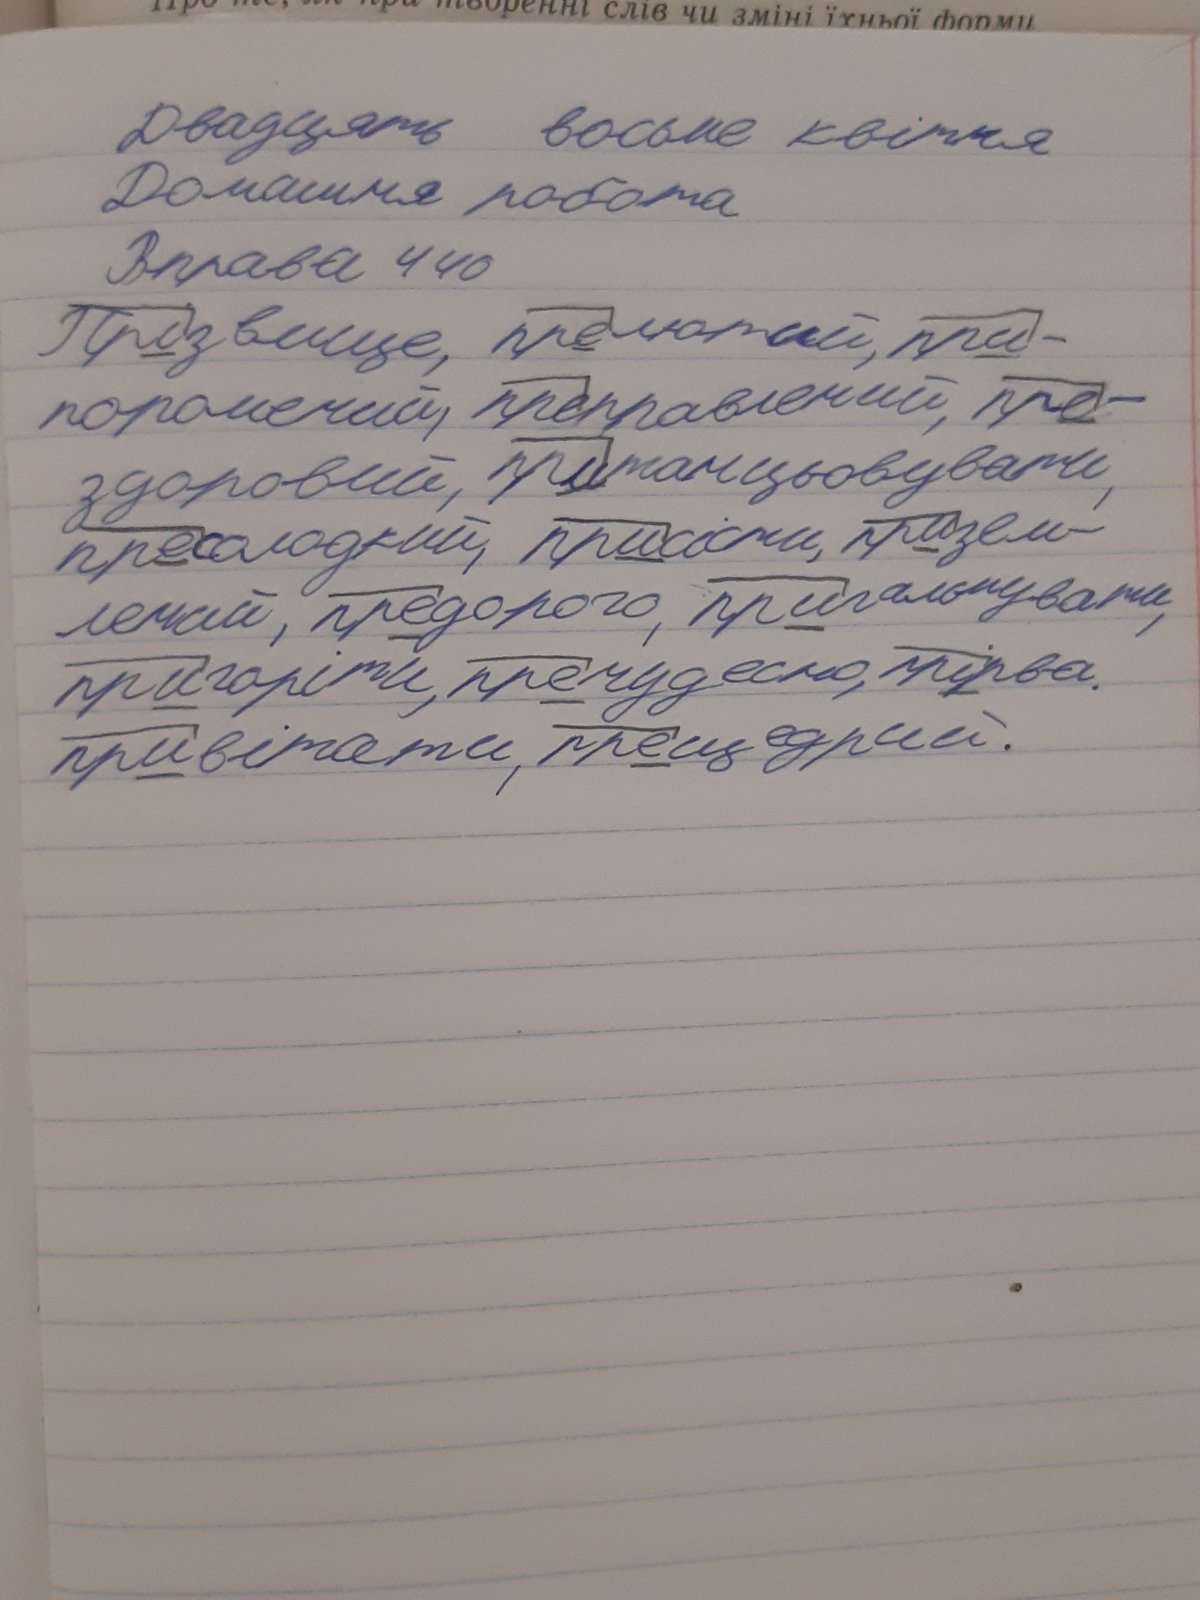 Про те, як при творенні слів чи зміні їхньої форми
Двадцять восьме квітня
Домашня робота
Вправа 440
Прізвище, прелютий, при-
порошений, преправлений, пре-
здоровий, пританцьовувати,
пресолодкий, присісти, призем-
лений, предорого, пригальмувати,
пригоріти, пречудесно, прірва.
привітати, прещедрий.